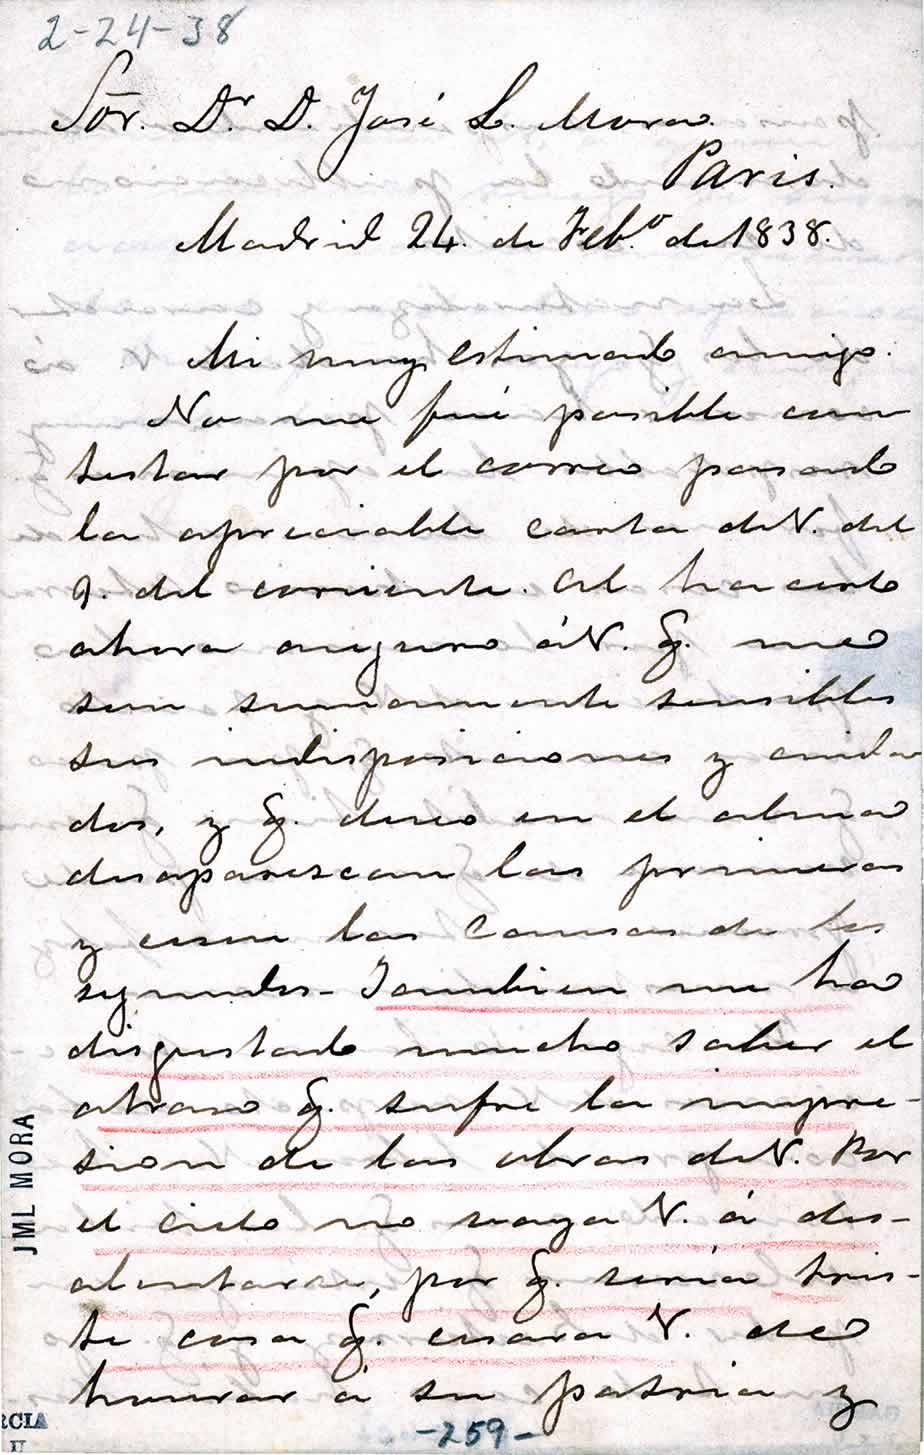 2-24-38
Sōr. Dr. D. José L. Mora.
Paris.
Madrid 24. de Feb.o de 1838.
Mi muy estimado amigo:
No me fué posible con
testar por el correo pasado
la apreciable carta de V. del
9. del corriente. Al hacerlo
ahora aseguro á V. q. me
son sumamente sensibles
sus indisposiciones y cuida
dos, y q. deseo en el alma
desaparezcan las primeras
y cesen las causas de los
segundos- Tambien me ha
disgustado mucho saber el
atraso q. sufre la impre-
sion de las obras de V. Por
el cielo no vaya V. á des-
alentarse, por q. seria tris-
te cosa q. cesara V. de
honrar á su patria y
JML MORA
RCIA
II
-259-